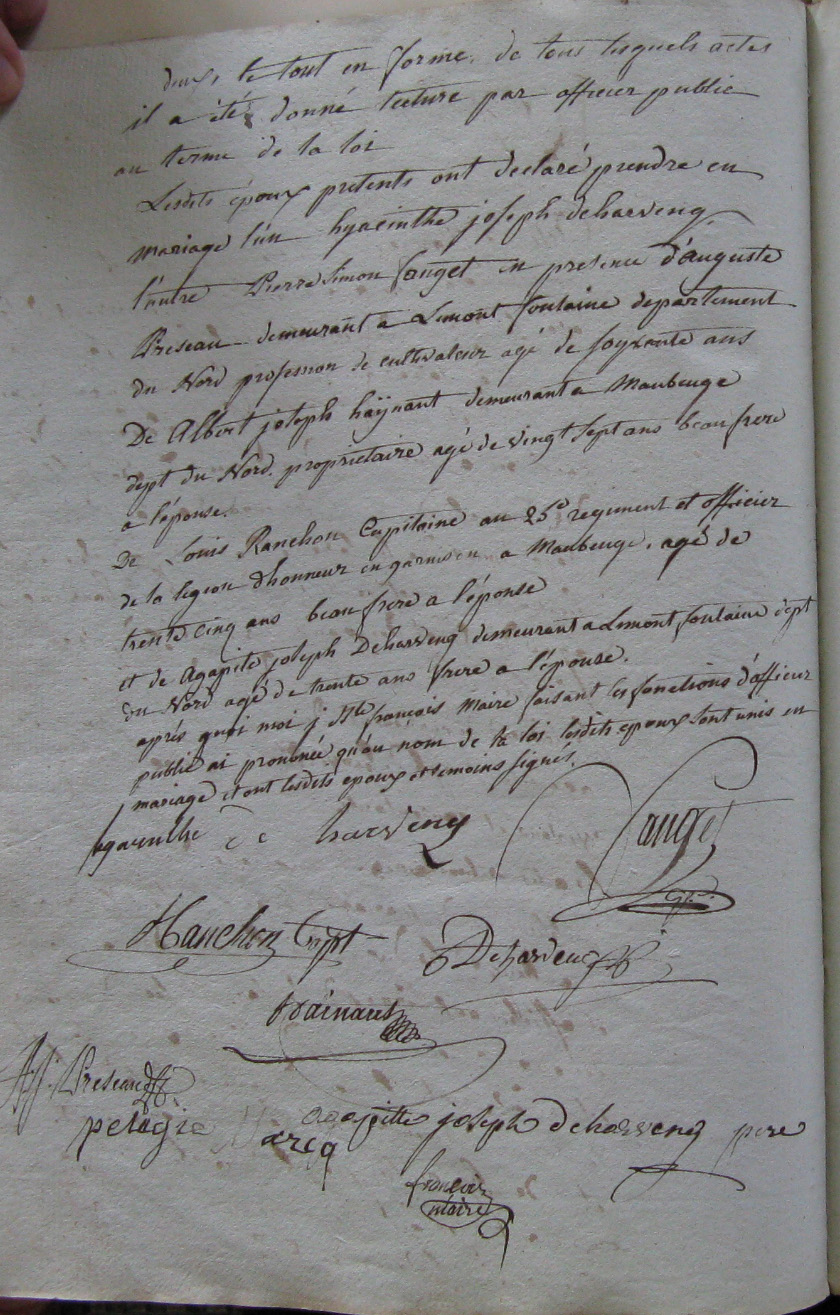 deux, le tout en forme, de tous lesquels actes
il a été donné lecture par officier public
au terme de la loi
Lesdits époux présents ont declaré prendre en
mariage l'un hyacinthe joseph deharveng
l'autre Pierre Simon Canget en presence d'auguste
Preseau demeurant a Limont fontaine departement
du Nord profession de cultivateur agé de soixante ans
De Albert joseph haÿnaut demeurant a Maubeuge
dept du Nord. proprietaire agé de vingt sept ans beau frere
a l'épouse.
De Louis Ranchon Capitaine au 25e regiment et officier
de la legion d'honneur en garnison a Maubeuge, agé de
trente cinq ans beau frere a l'épouse
et de Agapite joseph Deharveng demeurant a Limont fontaine dept
du Nord agé de trente ans frere a l'épouse.
après quoi moi j Bte françois Maire faisant les fonctions d'officier
public ai prononcé qu'au nom de la loi lesdits epoux sont unis en
mariage et ont lesdits epoux et temoins signés.
hyacinthe de harveng Canget
Ranchon Capt Deharveng
hainaut
A. J. Preseau
pelagie arcq agapitte joseph deharveng pere
françois
maire